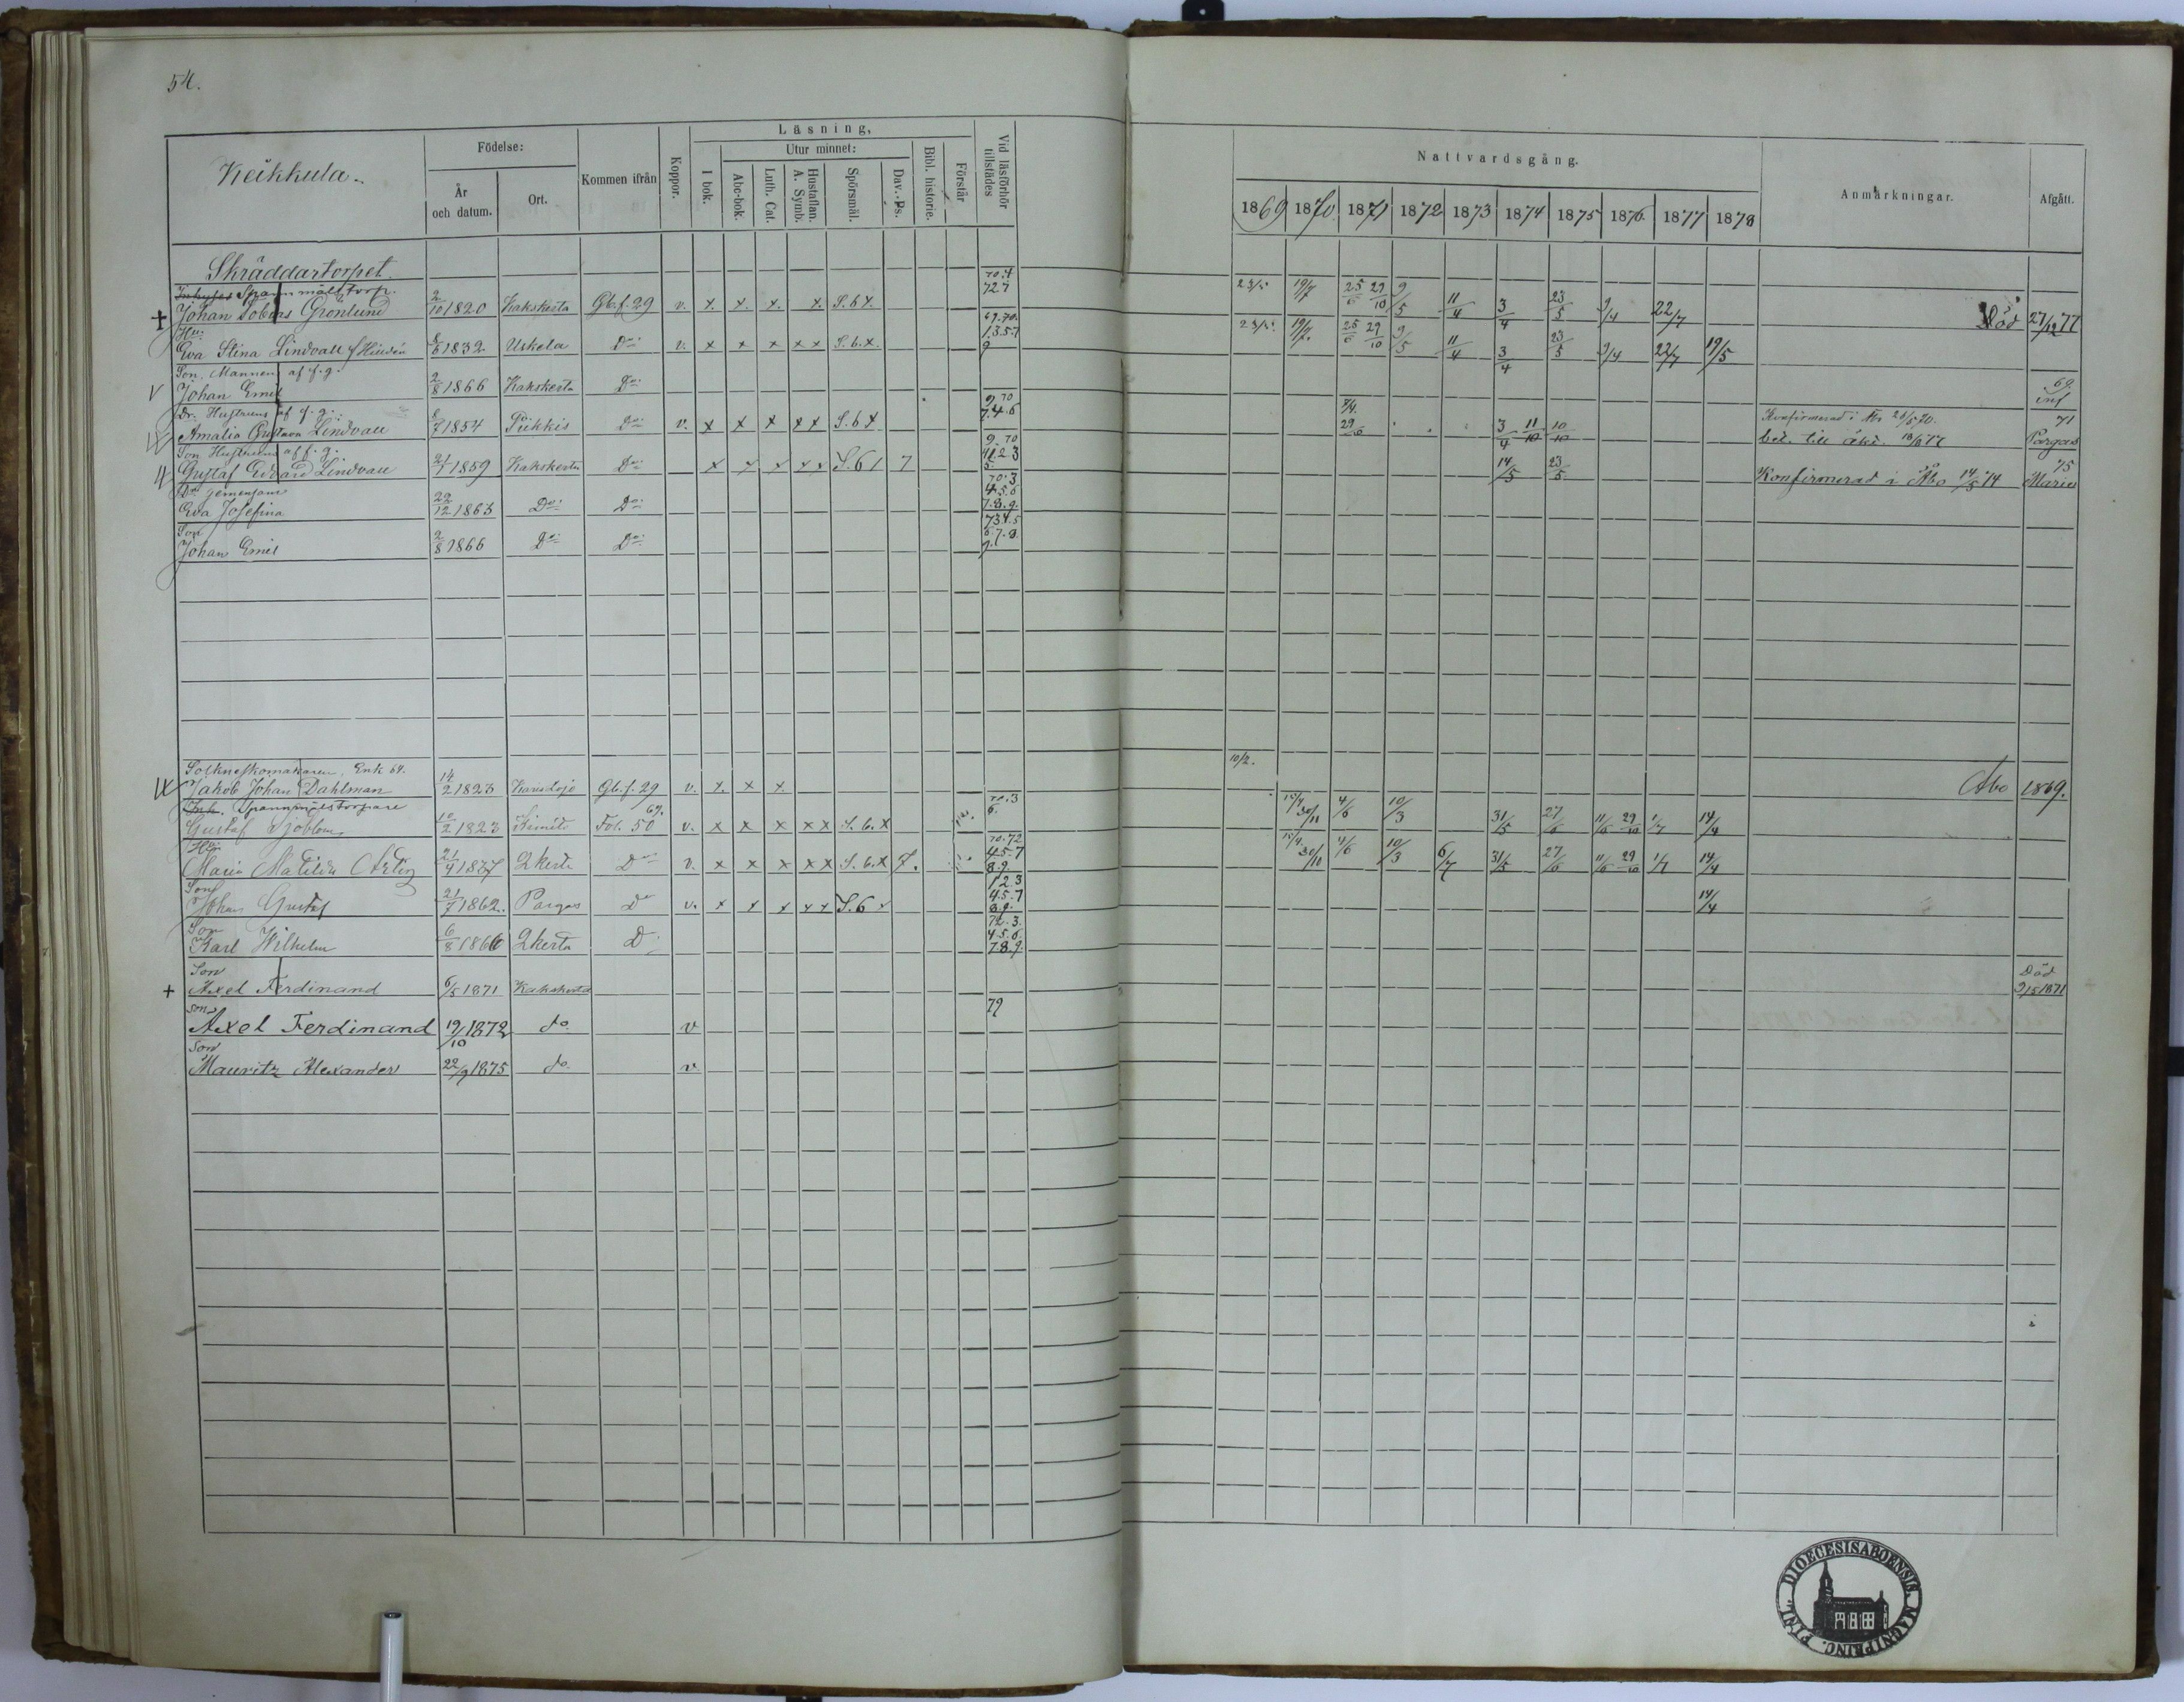 54.
Keikkula.
Födelse:
År och datum.
Ort.
Kommen ifrån
Koppor.
Läsning,
I bok.
Utur minnet:
Abc-bok.
Luth. Cat.
Hustaflan. A. Symb.
Spörsmål.
Dav. Ps.
Bibl. historie.
Förstår
Vid läsförhör tillstädes
Nattvardsgång.
1869 1870 1871 1872 1873 1874 1875 1876 1877 1878
Anmärkningar.
Afgått.
Skräddartorpet.
70.4
Inhyses Spannmålstorp. 727
† Johan Tobias Grönlund 2/10 1820 Kakskerta Gb.f.29 v. x. x. x. x. S.6x. 23/5 19/7 25/6 29/10 9/5 11/4 3/4 23/5 9/4 22/7 Död 27/12 77
Hu: 69.70.
Eva Stina Lindvall f Hindén 8/6 1832 Uskela Do v. x x x x x S.6.x. 1.3.5.7 9 23/5 19/7. 25/6 29/10 9/5 11/4 3/4 23/5 9/4 22/7 19/5
Son, Mannens af f.g.
V Johan Emil 2/8 1866 Kakskerta Do 69. inf
Dr. Hustruns af f.g. 9.70
Amalia Gustava Lindvall 8/7 1854 Piikkis Do v. x x x x x S.6x 7.4.6 7/4. 29/6 3/4 11/10 10/10 Konfirmerad i Åbo 28/5 70. 71
bet. till äkt. 18/6 77 Pargas
Son Hustruns af f.g. 9.70
Gustaf Edvard Lindvall 21/1 1859 Kakskerta Do x x x x x S.6 1 7 11.2.3 5. 14/5 23/5 Konfirmerad i Åbo 14/5 74 75 Marie
Dr gemensam 70.3
Eva Josefina 22/12 1863 Do Do 4.5.6 7.8.9.
Son 73 4.5
Johan Emil 2/8 1866 Do Do 6.7.8. 9.
Sockneskomakaren, Enk 64. 10/2.
Jakob Johan Dahlman 14/2 1823 Karislojo Gb.f.29 v. x. x x. Åbo 1869.
Inh. Spannmålstorpare 69. 70.3
Gustaf Sjöblom 10/2 1823 Kimito Fol. 50 v. x x x x x S.6.x 6. 15/4 30/11 4/6 10/3 31/5 27/6 11/6 29/10 1/7 14/4
Hu 70.72
Maria Matilda 21/9 1837 2kerta Do v. x x x x x S.6.x 7. 4.5.7 8.9. 15/4 30/10 4/6 10/3 6/7 31/5 27/6 11/6 29/10 1/7 14/4
Son 1.2.3
Johan Gustaf 21/7 1862. Pargas Do v. x x x x x S.6 x 4.5.7 8.9. 14/4
Son 72.3.
Karl Wilhelm 6/8 1866 2kerta D 4.5.6. 7.8.9.
Son Död
+ Axel Ferdinand 6/5 1871 Kakskerta 9/5 1871
Son 79
Axel Ferdinand 19/10 1872 do v
Son
Mauritz Alexander 22/9 1875 do v
DIOECESIS ABOENSIS. MAGNI PRINC. FINL.